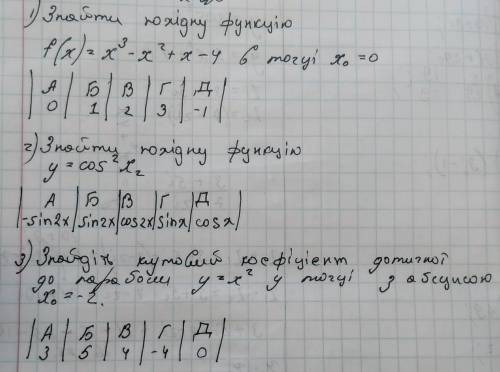 1) Знайти похідну функцію
f(x) = x³ - x² + x - 4 в точці x₀ = 0
| А | Б | В | Г | Д |
| 0 | 1 | 2 | 3 | -1 |
2) Знайти похідну функцію
y = cos² x₂
| А | Б | В | Г | Д |
| -sin2x | sin2x | cos2x | sinx | cosx |
3) Знайдіть кутовий коефіцієнт дотичної
до параболи y = x² у точці з абсцисою
x₀ = -2.
| А | Б | В | Г | Д |
| 3 | 5 | 4 | -4 | 0 |